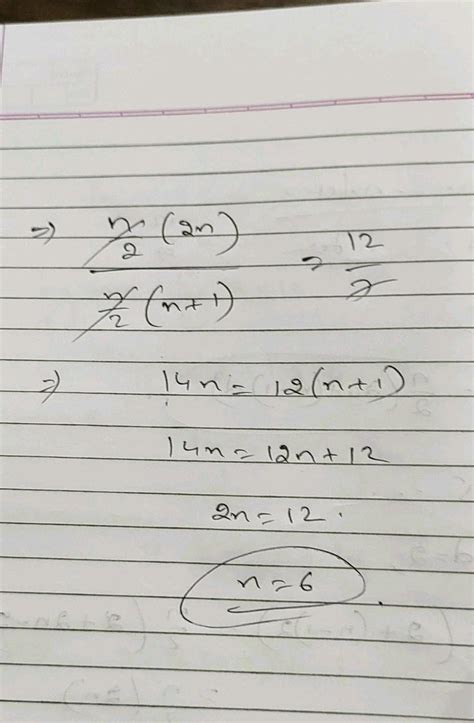 ⇒ n/2 (2n) / n/2 (n+1) = 12/7
⇒ 14n = 12(n+1)
14n = 12n + 12
2n = 12.
n = 6.